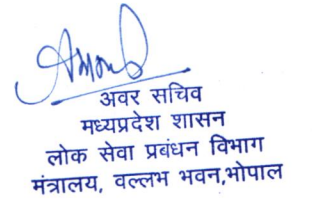 अवर सचिव
मध्यप्रदेश शासन
लोक सेवा प्रबंधन विभाग
मंत्रालय, वल्लभ भवन,भोपाल